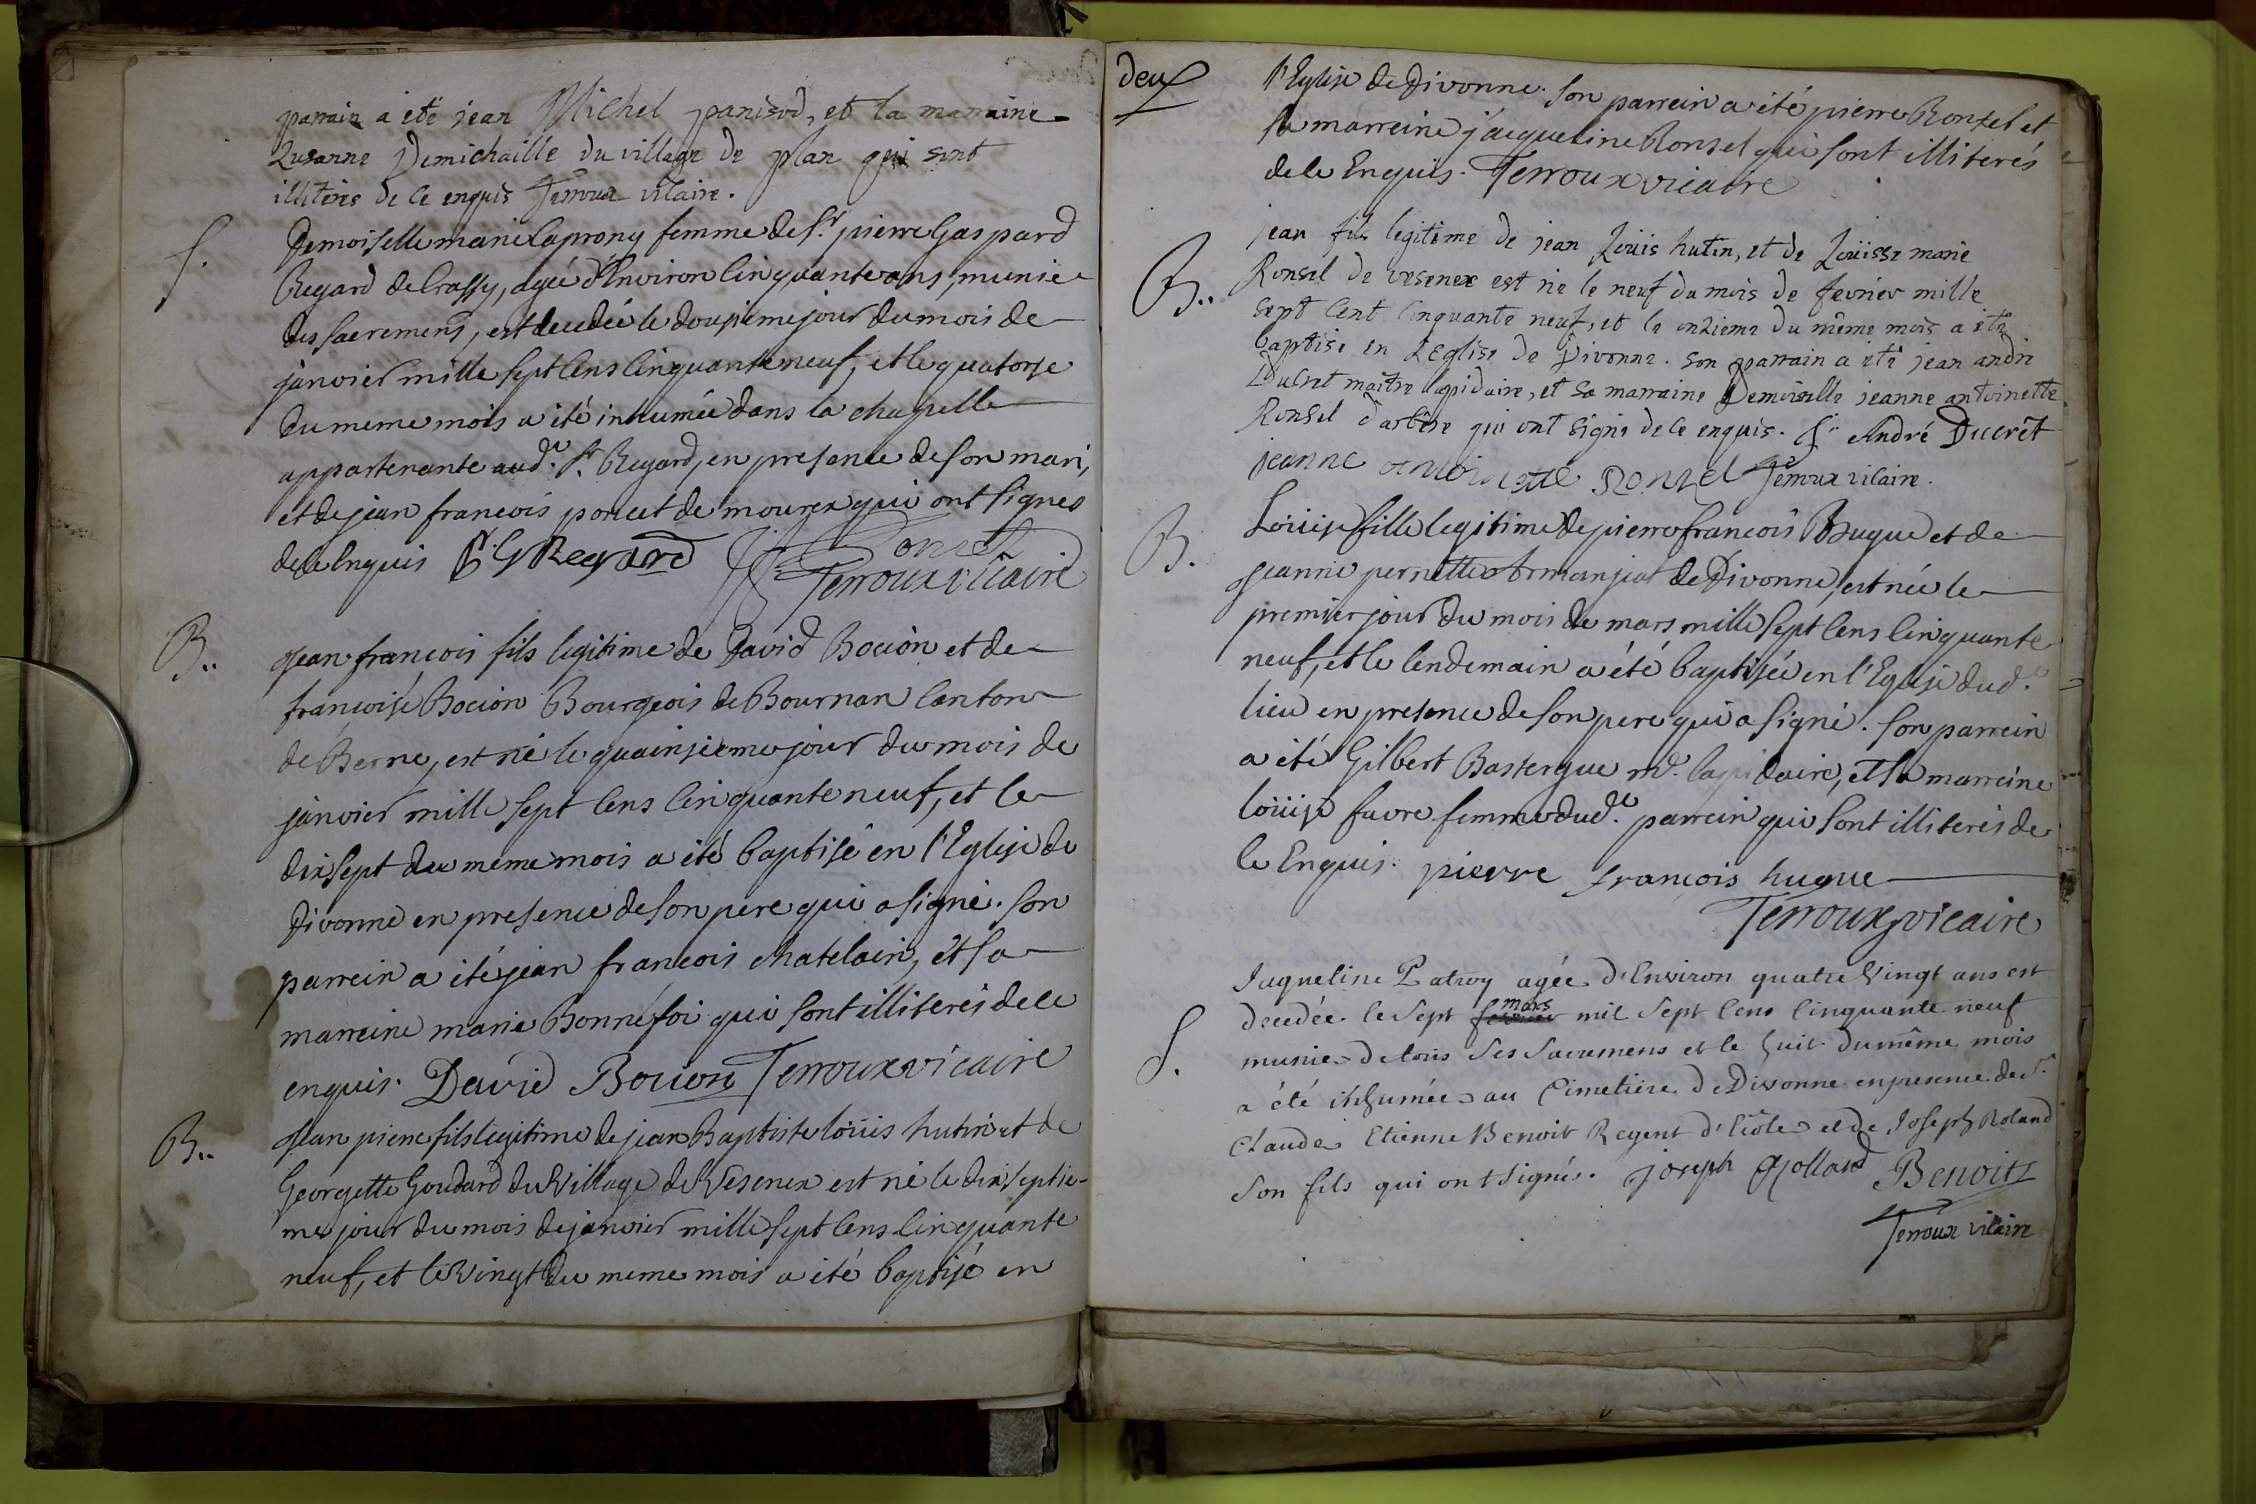 parrain a été jean Michel panisod, et la marraine
Susanne Demichaille du village de plan qui sont
illiterés de ce enquis Terroux vicaire.
S.
Demoiselle marie Laprony femme de Sr. pierre Gaspard
Regard de Crassy, agée d'Environ Cinquante ans, munie
des sacremens, est decedée le douzieme jour du mois de
janvier mille sept Cens Cinquante neuf, et le quatorze
du meme mois a été inhumée dans la chapelle
appartenante aud.e Sr. Regard, en presence de son mari,
et de jean francois poncet de mourex qui ont signes
de ce Enquis P G Regard Poncet
Terroux vicaire
B..
Jean françois fils legitime de David Bocion et de
francoise Bocion Bourgeois de Bournan Canton
de Berne, est né le quainsieme jour du mois de
janvier mille sept Cens Cinquante neuf, et le
dix sept du meme mois a été baptisé en l'Eglise de
Divonne en presence de son pere qui a signé. son
parrein a été jean francois chatelain, et sa
marreine marie Bonnefoi qui sont illiterés de ce
enquis. David Bocion Terroux vicaire
B..
Jean pierre fils legitime de jean Baptiste loüis hutin et de
Georgette Goudard du Village de Vesenex est né le dix septie-
me jour du mois de janvier mille sept Cens Cinquante
neuf, et le Vingt du meme mois a été baptisé en
deux
l'Eglise de Divonne. son parrein a été pierre Ronzel et
sa marreine jacqueline Ronsel qui sont illiterés
de ce Enquis. Terroux vicaire
B..
jean fils legitime de jean Loüis hutin, et de Loüisse marie
Ronsel de vesenex est né le neuf du mois de fevrier mille
sept Cent Cinquante neuf, et le onzieme du même mois a été
baptisé en L'Eglise de Divonne. son parrain a été jean andré
Ducret maître lapidaire, et sa marraine Demoiselle jeanne antoinette
Ronsel d'arbere qui ont signé de ce enquis. Jn André Ducret
jeanne antoinette Ronzel Terroux vicaire.
B.
Loüise fille legitime de pierre francois Hugue et de
Jeanne pernette Armanjeat de Divonne, est née le
premier jour du mois de mars mille sept Cens Cinquante
neuf, et le lendemain a été baptisée en l'Eglise dud.e
lieu en presence de son pere qui a signé. son parrein
a été Gilbert Bastergue md. lapidaire, et sa marreine
loüise favre femme dud.e parrein qui sont illiterés de
ce Enquis. pierre françois hugue
Terroux vicaire
S.
Jaqueline Patroy agée d'Environ quatre Vingt ans est
decedée le sept fevrier mars mil sept Cens Cinquante neuf
munie de tous ses sacremens et le huit du même mois
a été inhumée au Cimetiere de Divonne en presence de Sr.
Claude Etienne Benoit Regent d'Ecole et de Joseph Roland
son fils qui ont signés. joseph Rolland Benoit
Terroux vicaire